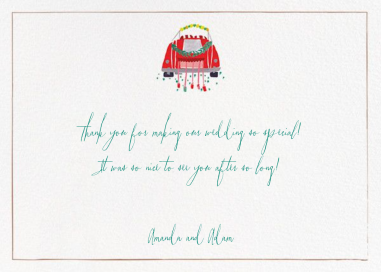 Thank you for making our wedding so special!
It was so nice to see you after so long!
Amanda and Adam